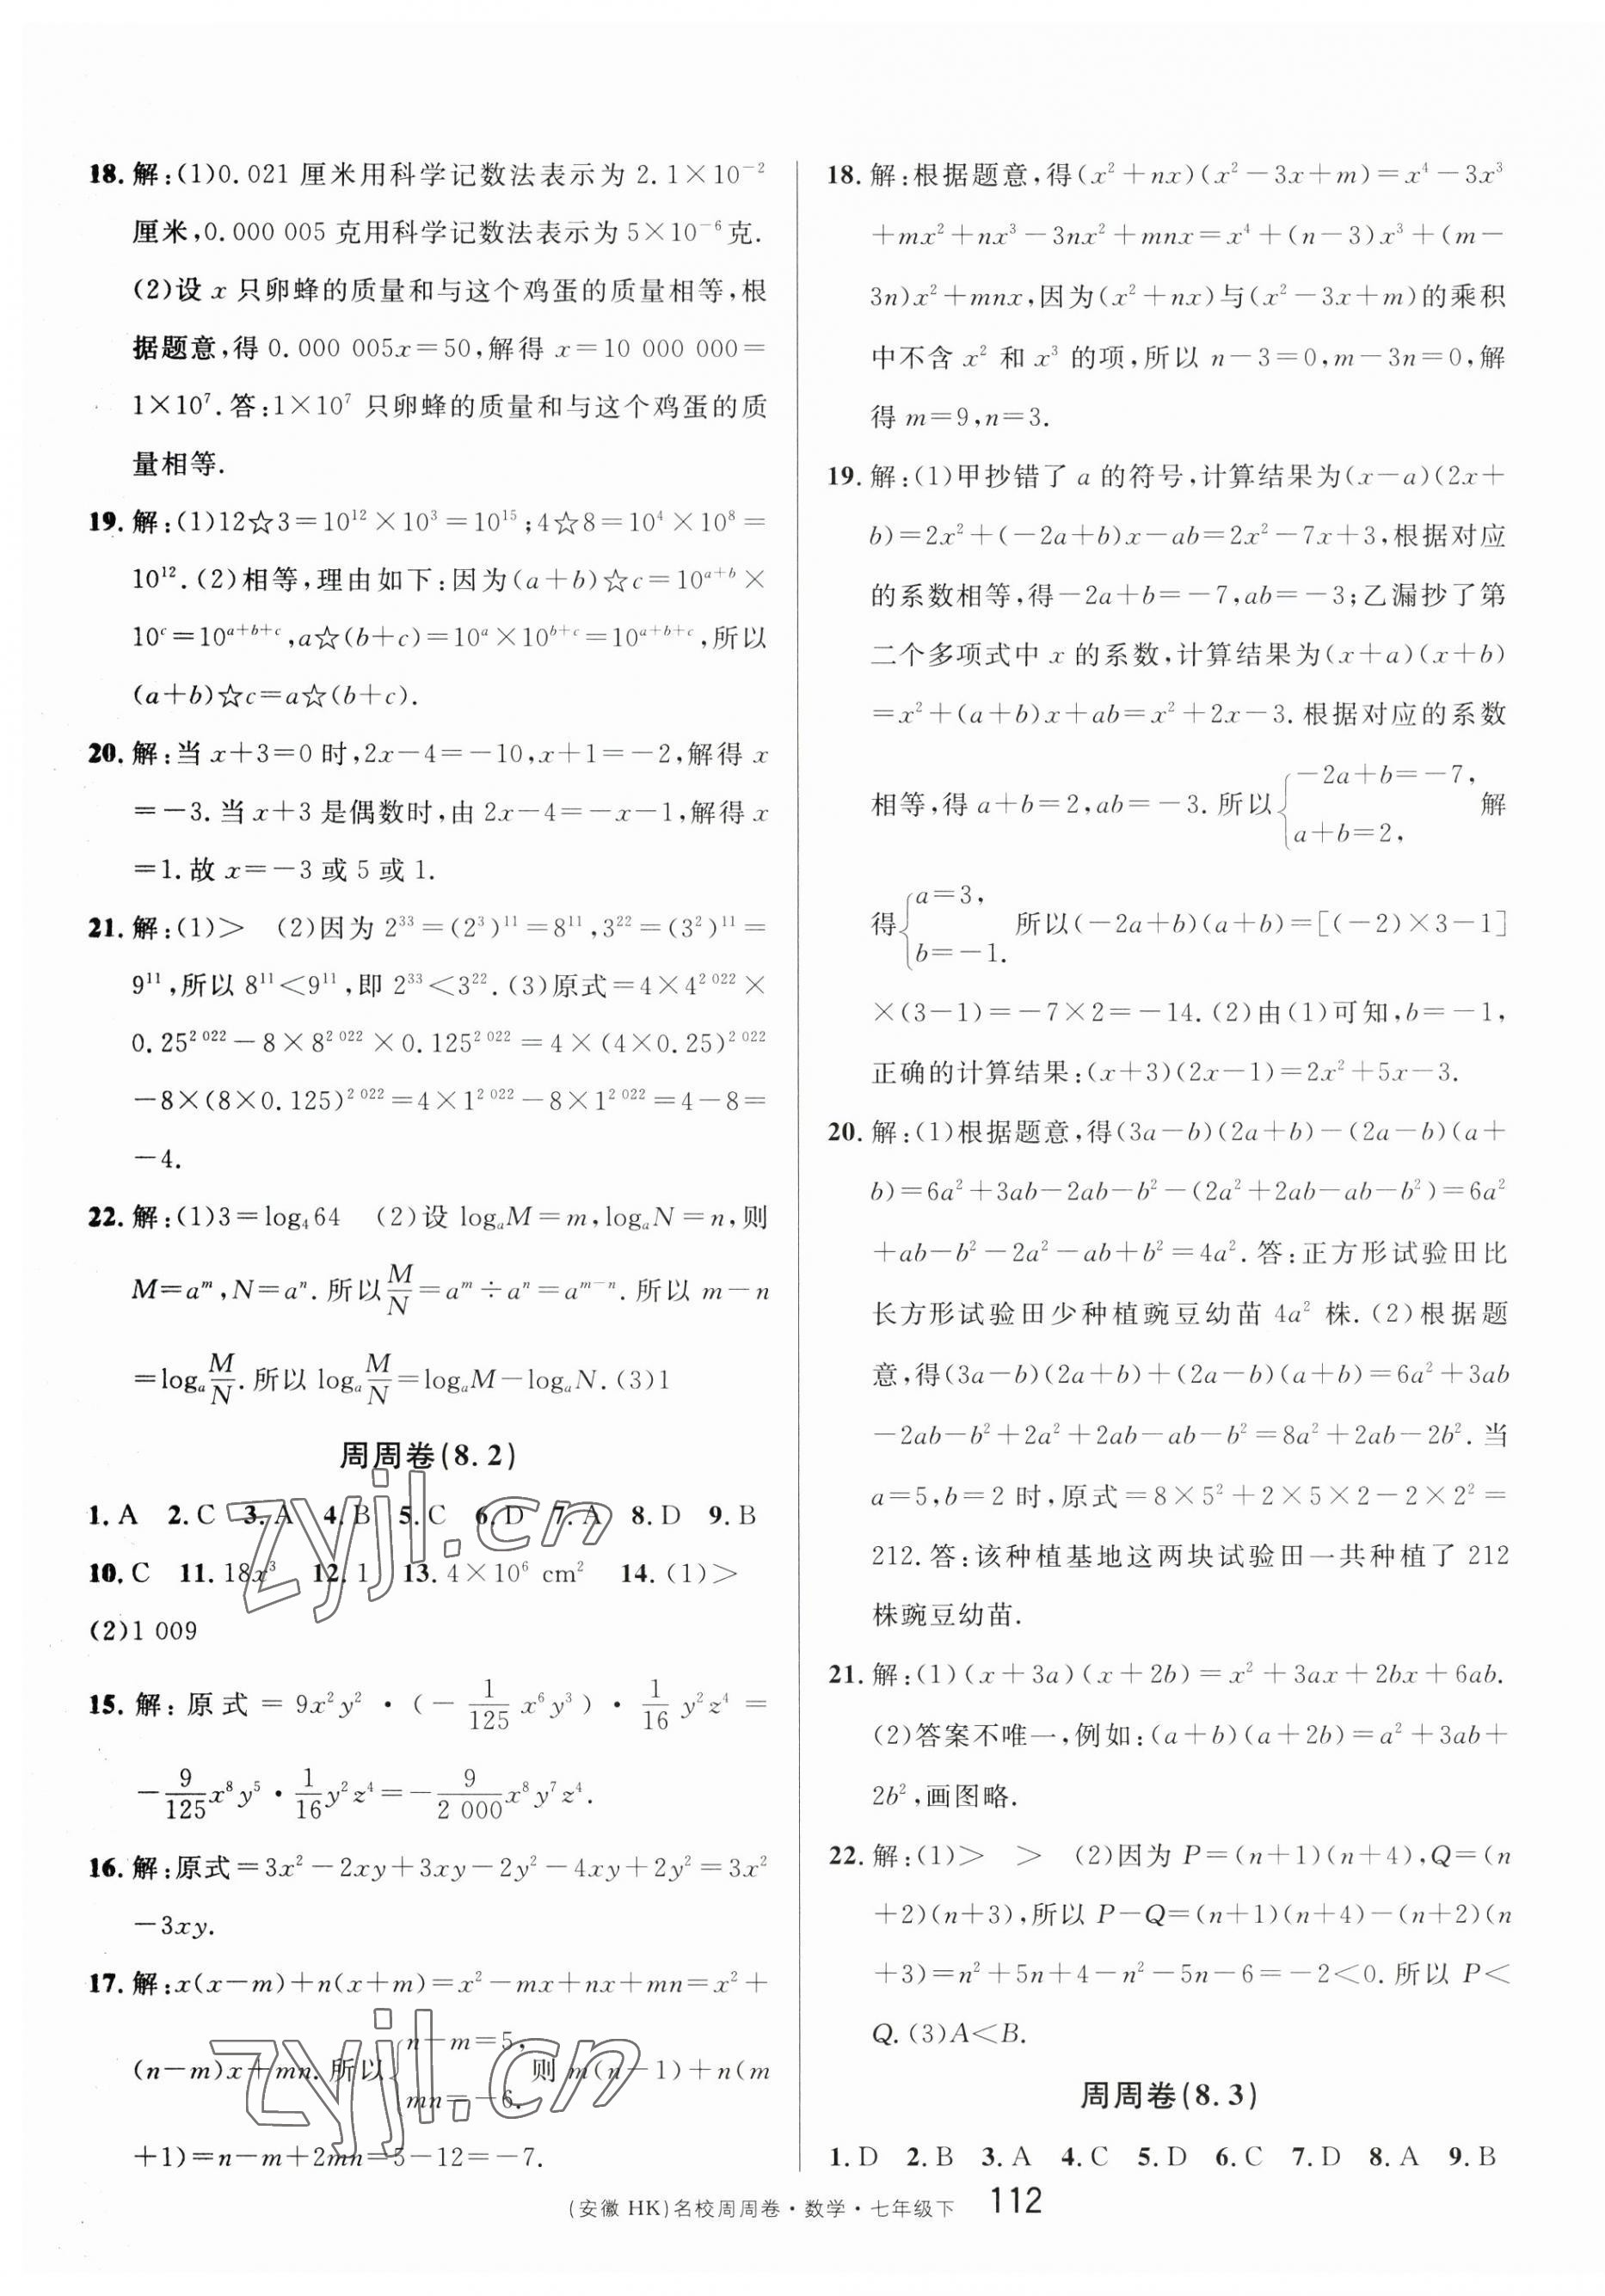 18. 解:(1)0. 021 厘米用科学记数法表示为 2. 1×10⁻²
厘米,0. 000 005 克用科学记数法表示为 5×10⁻⁶ 克.
(2)设 x 只卵蜂的质量和与这个鸡蛋的质量相等,根
据题意,得 0. 000 005x=50,解得 x=10 000 000=
1×10⁷. 答:1×10⁷ 只卵蜂的质量和与这个鸡蛋的质
量相等.
19. 解:(1)12☆3=10¹²×10³=10¹⁵;4☆8=10⁴×10⁸=
10¹². (2)相等,理由如下:因为(a+b)☆c=10ᵃ⁺ᵇ×
10ᶜ=10ᵃ⁺ᵇ⁺ᶜ,a☆(b+c)=10ᵃ×10ᵇ⁺ᶜ=10ᵃ⁺ᵇ⁺ᶜ,所以
(a+b)☆c=a☆(b+c).
20. 解:当 x+3=0 时,2x-4=-10,x+1=-2,解得 x
=-3. 当 x+3 是偶数时,由 2x-4=-x-1,解得 x
=1. 故 x=-3 或 5 或 1.
21. 解:(1)> (2)因为 2³³=(2³)¹¹=8¹¹,3²²=(3²)¹¹=
9¹¹,所以 8¹¹<9¹¹,即 2³³<3²². (3)原式=4×4²⁰²²×
0. 25²⁰²²-8×8²⁰²²×0. 125²⁰²²=4×(4×0. 25)²⁰²²
-8×(8×0. 125)²⁰²²=4×1²⁰²²-8×1²⁰²²=4-8=
-4.
22. 解:(1)3=log₄64 (2)设 logₐM=m,logₐN=n,则
M=aᵐ,N=aⁿ. 所以 M/N=aᵐ÷aⁿ=aᵐ⁻ⁿ. 所以 m-n
=logₐ M/N. 所以 logₐ M/N=logₐM-logₐN. (3)1
周周卷(8. 2)
1. A 2. C 3. A 4. B 5. C 6. D 7. A 8. D 9. B
10. C 11. 18x³ 12. 1 13. 4×10⁶ cm² 14. (1)>
(2)1 009
15. 解:原式=9x²y²·(-1/125 x⁶y³)·1/16 y²z⁴=
-9/125 x⁸y⁵·1/16 y²z⁴=-9/2 000 x⁸y⁷z⁴.
16. 解:原式=3x²-2xy+3xy-2y²-4xy+2y²=3x²
-3xy.
17. 解:x(x-m)+n(x+m)=x²-mx+nx+mn=x²+
(n-m)x+mn. 所以{n-m=5, mn=-6. 则 m(n-1)+n(m
+1)=n-m+2mn=5-12=-7.
18. 解:根据题意,得(x²+nx)(x²-3x+m)=x⁴-3x³
+mx²+nx³-3nx²+mnx=x⁴+(n-3)x³+(m-
3n)x²+mnx,因为(x²+nx)与(x²-3x+m)的乘积
中不含 x² 和 x³ 的项,所以 n-3=0,m-3n=0,解
得 m=9,n=3.
19. 解:(1)甲抄错了 a 的符号,计算结果为(x-a)(2x+
b)=2x²+(-2a+b)x-ab=2x²-7x+3,根据对应
的系数相等,得-2a+b=-7,ab=-3;乙漏抄了第
二个多项式中 x 的系数,计算结果为(x+a)(x+b)
=x²+(a+b)x+ab=x²+2x-3. 根据对应的系数
相等,得 a+b=2,ab=-3. 所以{-2a+b=-7, a+b=2, 解
得{a=3, b=-1. 所以(-2a+b)(a+b)=[(-2)×3-1]
×(3-1)=-7×2=-14. (2)由(1)可知,b=-1,
正确的计算结果:(x+3)(2x-1)=2x²+5x-3.
20. 解:(1)根据题意,得(3a-b)(2a+b)-(2a-b)(a+
b)=6a²+3ab-2ab-b²-(2a²+2ab-ab-b²)=6a²
+ab-b²-2a²-ab+b²=4a². 答:正方形试验田比
长方形试验田少种植豌豆幼苗 4a² 株. (2)根据题
意,得(3a-b)(2a+b)+(2a-b)(a+b)=6a²+3ab
-2ab-b²+2a²+2ab-ab-b²=8a²+2ab-2b². 当
a=5,b=2 时,原式=8×5²+2×5×2-2×2²=
212. 答:该种植基地这两块试验田一共种植了 212
株豌豆幼苗.
21. 解:(1)(x+3a)(x+2b)=x²+3ax+2bx+6ab.
(2)答案不唯一,例如:(a+b)(a+2b)=a²+3ab+
2b²,画图略.
22. 解:(1)> > (2)因为 P=(n+1)(n+4),Q=(n
+2)(n+3),所以 P-Q=(n+1)(n+4)-(n+2)(n
+3)=n²+5n+4-n²-5n-6=-2<0. 所以 P<
Q. (3)A<B.
周周卷(8. 3)
1. D 2. B 3. A 4. C 5. D 6. C 7. D 8. A 9. B
(安徽 HK)名校周周卷·数学·七年级下 112
zyjl.cn
zyjl.cn